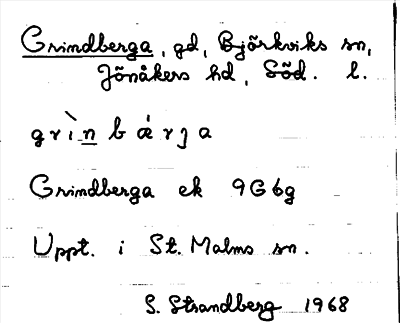 Grindberga, gd, Björkviks sn,
Jönåkers hd, Söd. l.
grìn bǽrȷa
Grindberga ek 9G6g
Uppt. i St. Malms sn.
S. Strandberg 1968